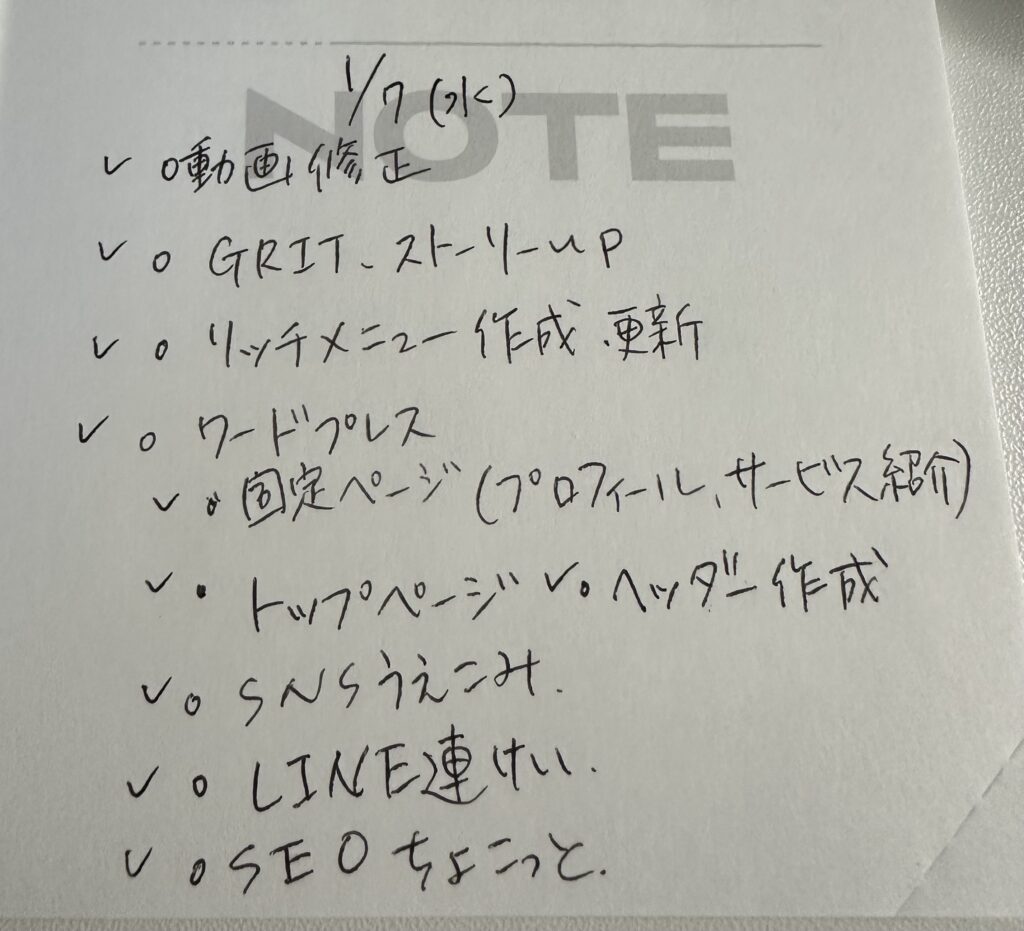 NOTE
1/7(水)
✓ o動画修正
✓ o GRIT、ストーリーup
✓ o リッチメニュー作成、更新
✓ o ワードプレス
✓ • 固定ページ(プロフィール、サービス紹介)
✓ • トップページ ✓ o ヘッダー作成
✓ o SNSうえこみ.
✓ o LINE連けい.
✓ o SEOちょこっと.